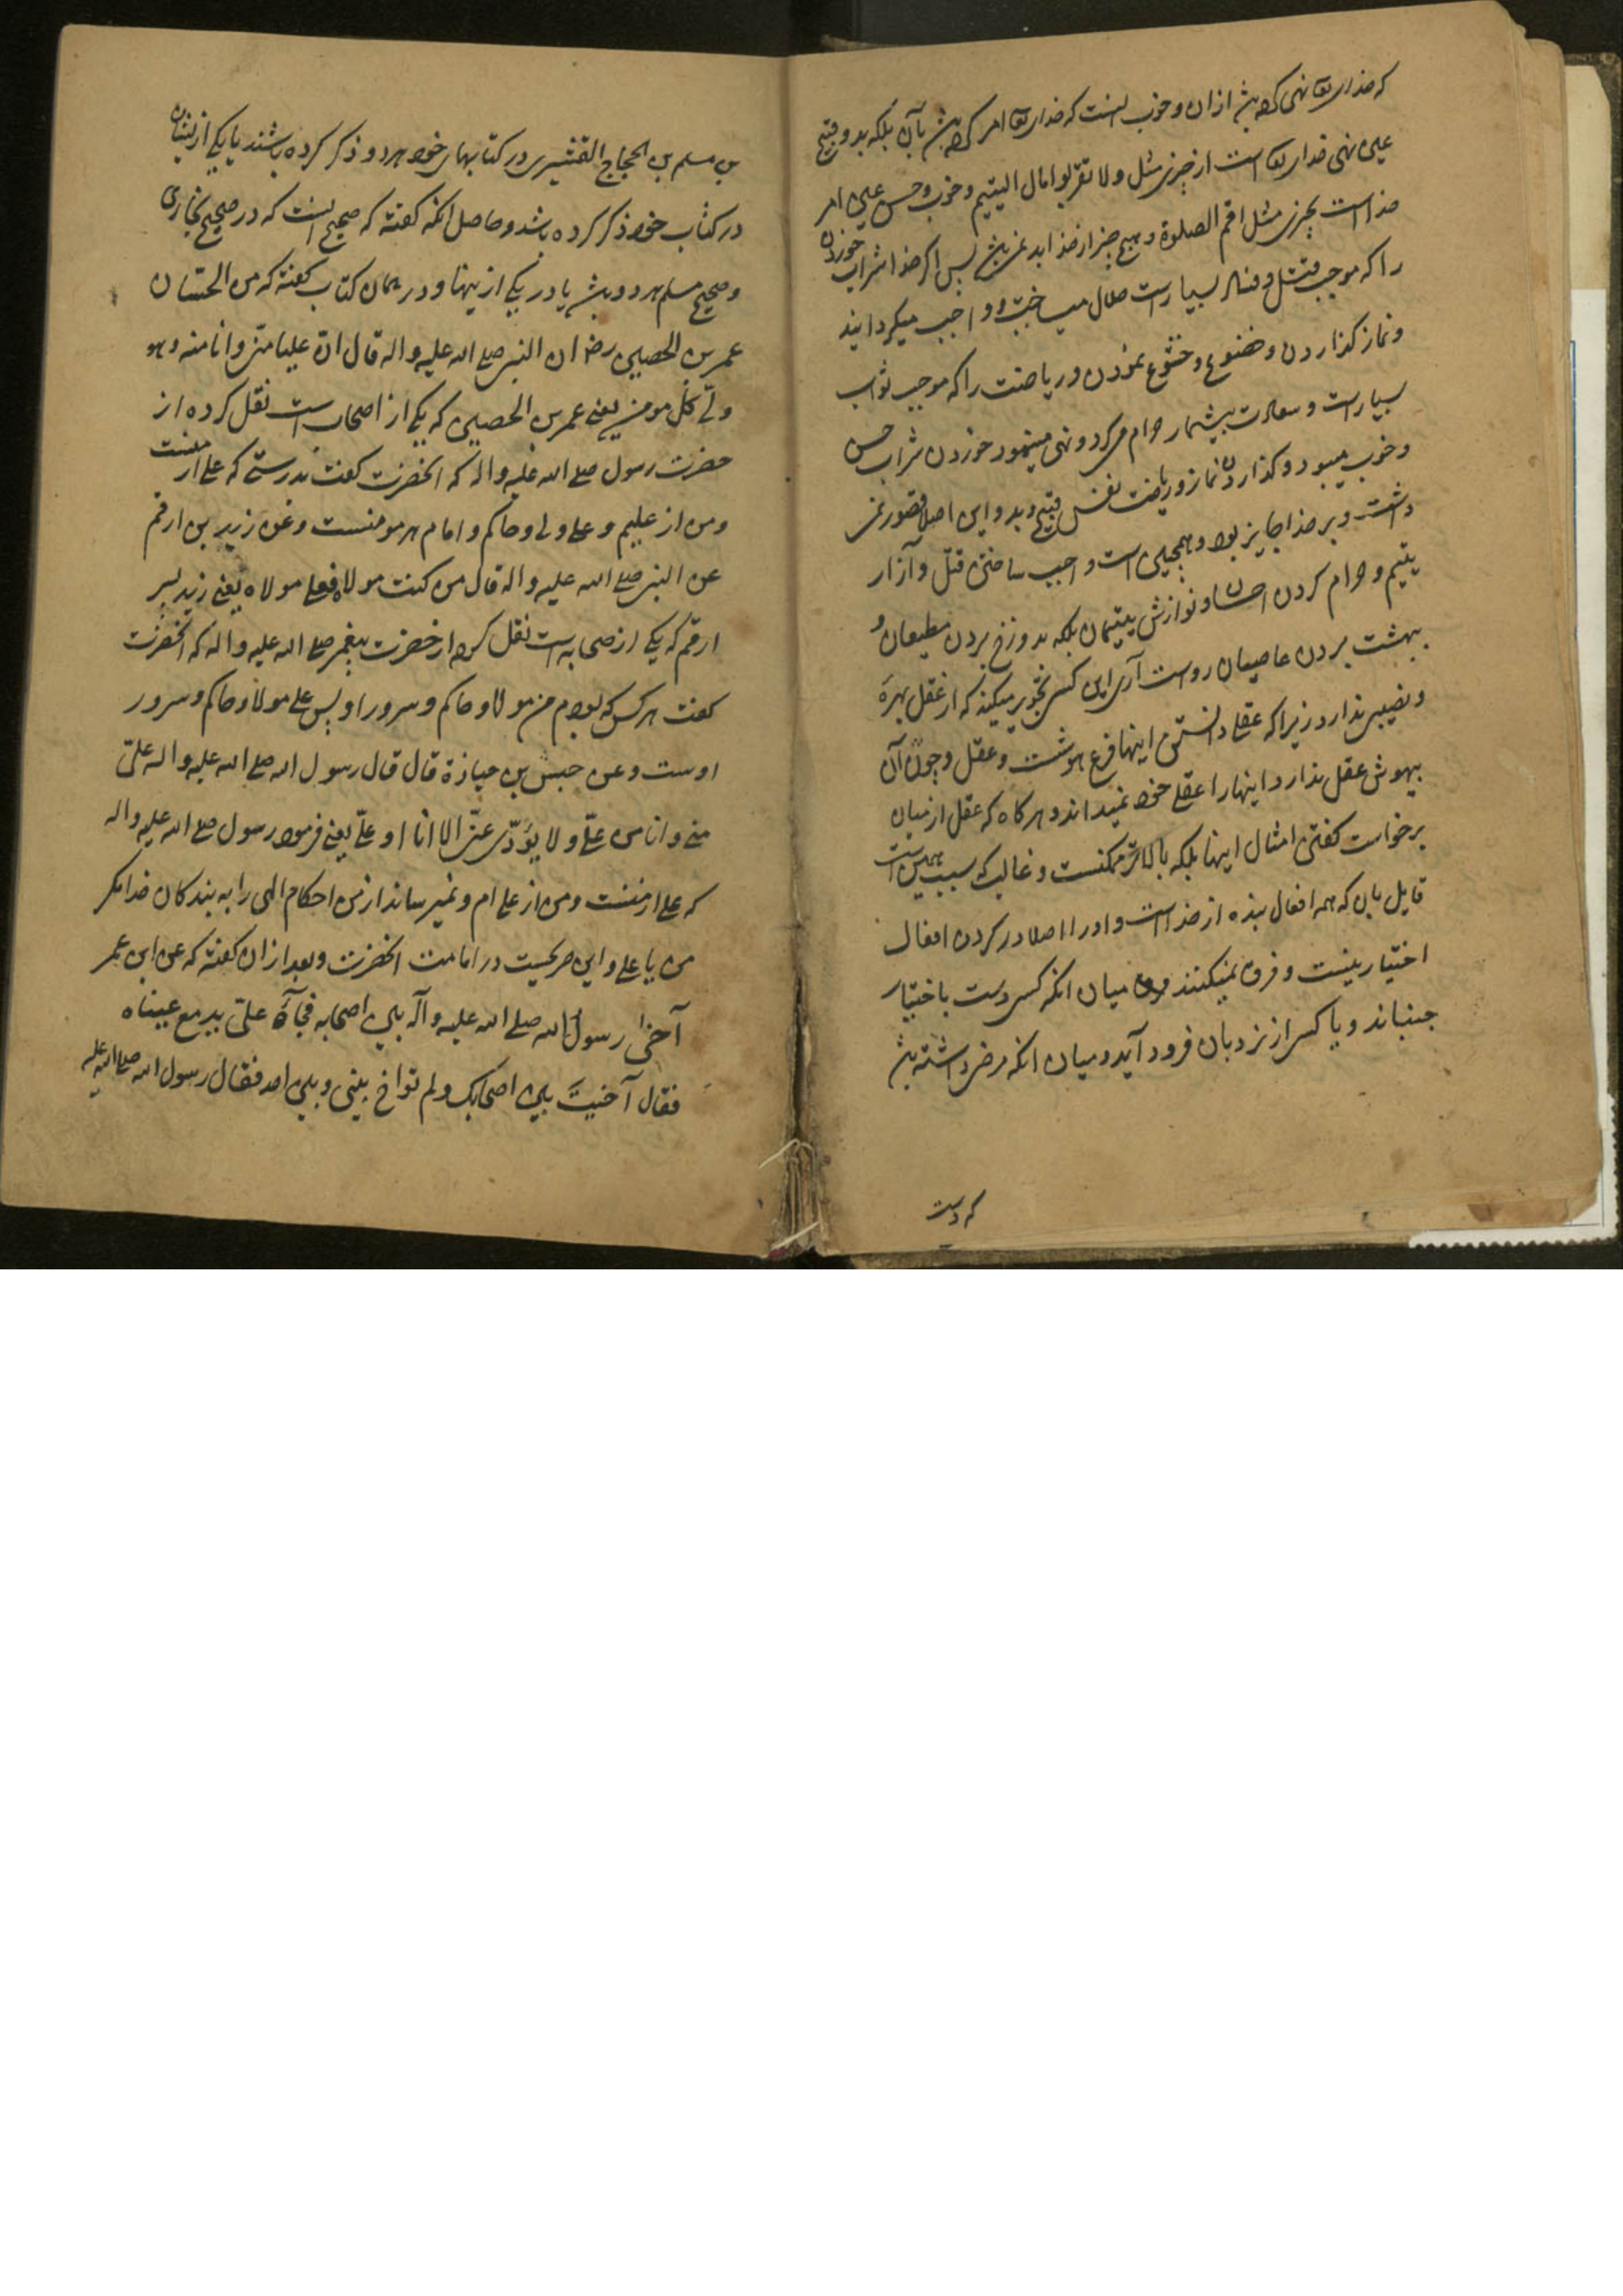 که خدای تعا نهی کرده باشد ازان و خوب آنست که خدای تعا امر کرده باشد بآن بلکه بد و قبیح
عین نهی خدای تعا است از چیزی مثل ولا تقربوا مال الیتیم و خوب و حسن عین امر
خداست بچیزی مثل اقم الصلوة و هیچ چیز از خدا بد نمی باشد پس اگر خدا شراب خوردن
را که موجب قتل و فساد بسیار است حلال میساخت و واجب میکردانید
و نماز کذاردن و خضوع و خشوع نمودن و ریاضت را که موجب ثواب
بسیار است و سعادت بیشمار حرام میکرد و نهی مینمود خوردن شراب حسن
و خوب میبود و کذاردن نماز و ریاضت نفس قبیح و بد و این اصلا قصور نمی
داشت و بر خدا جایز بود و همچنین است واجب ساختن قتل و آزار
یتیم و حرام کردن احسان و نوازش یتیمان بلکه بدوزخ بردن مطیعان و
بهشت بردن عاصیان رواست آری این کسی تجویز میکند که از عقل بهره
و نصیبی ندارد زیرا که عقلی دانستن اینها فرع هوشست و عقل و چون آن
بیهوش عقل ندارد اینها را عقلی خود نمیداند و هرکاه که عقل از میان
برخواست کفتن امثال اینها بلکه بالاتر ممکنست و غالب که سبب همین است
قایل بان که همه افعال بنده از خداست و او را اصلا در کردن افعال
اختیار نیست و فرق نمیکنند میان انکه کسی دست باختیار
جنباند و یا کسی از نردبان فرود آید و میان انکه مرض داشته باشد
که دست
بن مسلم بن الحجاج القشیری در کتابهای خود هر دو ذکر کرده باشند یا یکی ازیشان
در کتاب خود ذکر کرده باشد و حاصل انکه کفته که صحیح آنست که در صحیح بخاری
و صحیح مسلم هر دو باشد یا در یکی ازینها و در همان کتاب کفته که من الحسان
عمر بن الحصین رض ان النبی صلی الله علیه و اله قال ان علیا منی وانا منه وهو
ولی کل مومن یعنی عمر بن الحصین که یکی از اصحاب است نقل کرده از
حضرت رسول صلی الله علیه و اله که انحضرت کفت بدرستی که علی از منست
و من از علیم و علی ولی و حاکم و امام هر مومنست و عن زید بن ارقم
عن النبی صلی الله علیه و اله قال من کنت مولاه فعلی مولاه یعنی زید پسر
ارقم که یکی از صحابه است نقل کرد از حضرت پیغمبر صلی الله علیه و اله که انحضرت
کفت هر کس که بودم من مولا و حاکم و سرور او پس علی مولا و حاکم و سرور
اوست و عن حبش بن جنازة قال قال رسول الله صلی الله علیه و اله علی
منی و انا من علی ولا یؤدی عنی الا انا او علی یعنی فرمود رسول صلی الله علیه و اله
که علی از منست و من از علی ام و نمیرساند از من احکام الهی را به بندکان خدا مکر
من یا علی و این صریحست در امامت انحضرت و بعد ازان کفته که عن ابن عمر
آخی رسول الله صلی الله علیه و آله بین اصحابه فجآءَ علی تدمع عیناه
فقال آخیتَ بین اصحابک ولم تواخ بینی و بین احد فقال رسول الله صلی الله علیه